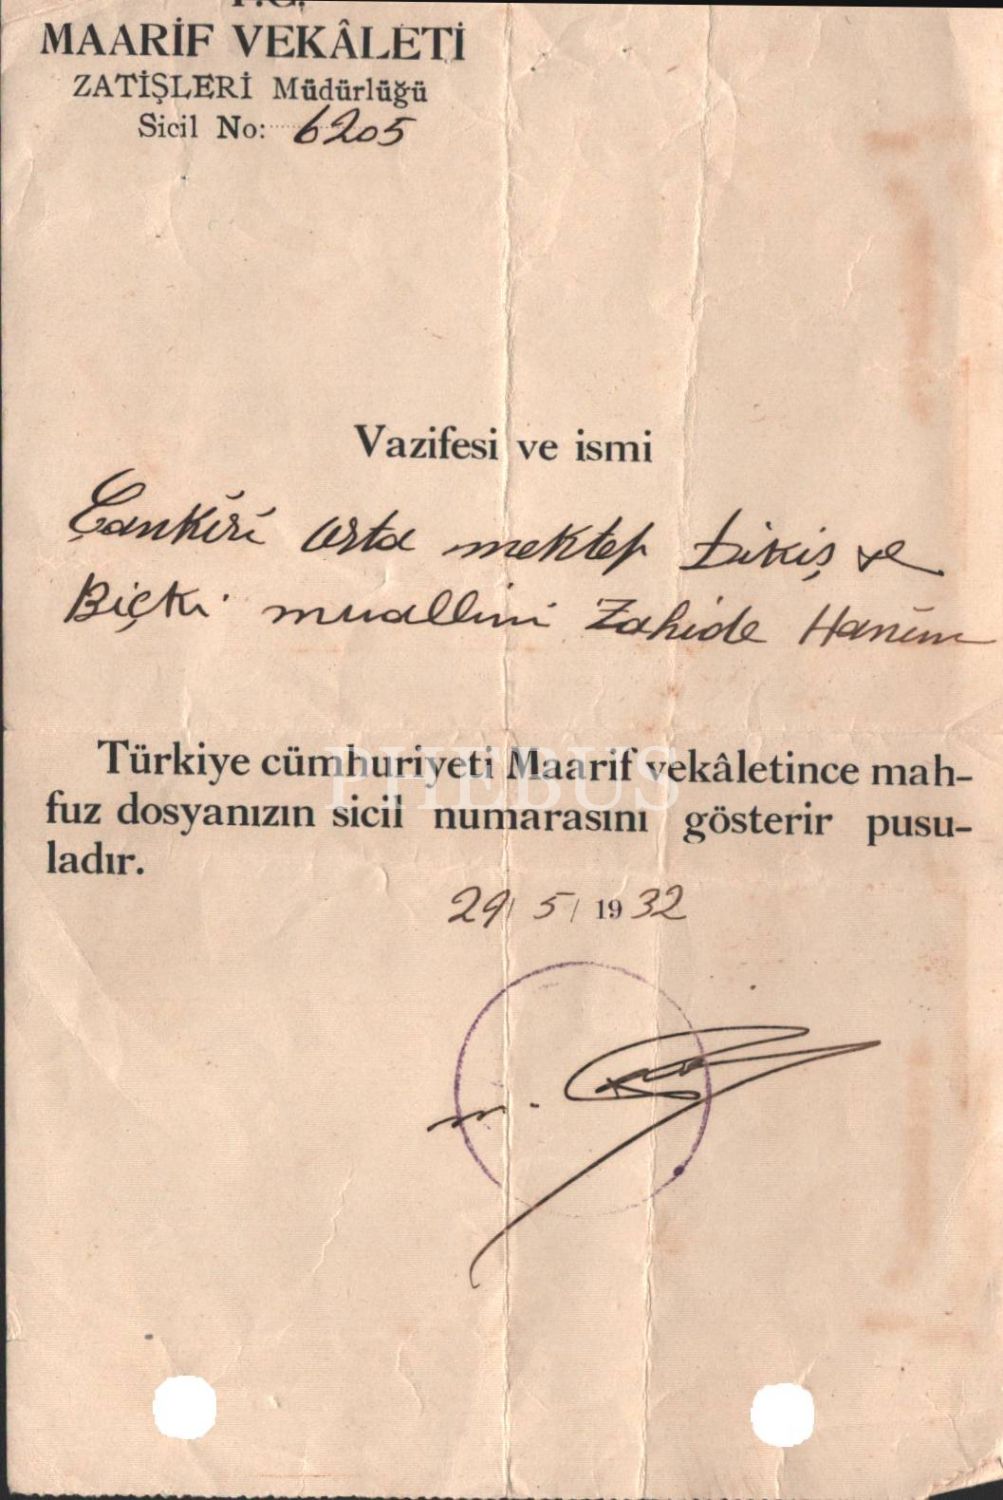 T.C.
MAARİF VEKÂLETİ
ZATİŞLERİ Müdürlüğü
Sicil No: 6205
Vazifesi ve ismi
Çankırı orta mektep Dikiş ve
Biçki muallimi Zahide Hanım
Türkiye cümhuriyeti Maarif vekâletince mah-
fuz dosyanızın sicil numarasını gösterir pusu-
ladır.
PHEBUS
29/5/1932